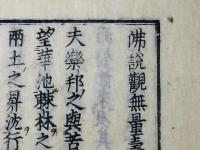 佛説觀無量壽
夫樂邦之與苦
望華池棘林之
兩土之昇沈行